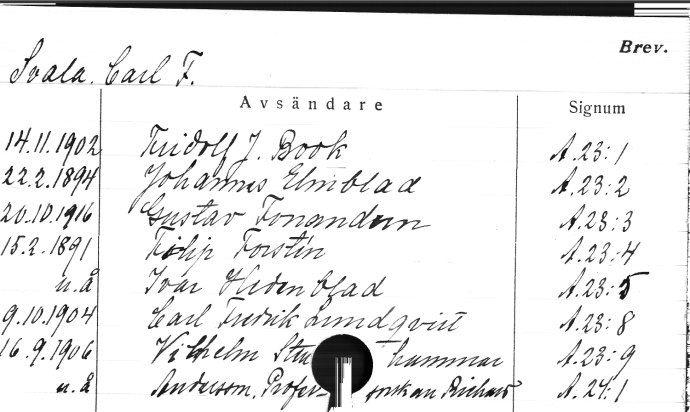 Brev.
Svala. Carl F.
Avsändare Signum
14.11.1902 Fridolf J. Book A.23:1
22.2.1894 Johannes Elmblad A.23:2
20.10.1916 Gustav Fonandern A.23:3
15.2.1891 Filip Forstén A.23:4
u.å Ivar Hedenblad A.23:5
9.10.1904 Carl Fredrik Lundqvist A.23:8
16.9.1906 Vilhelm Ste hammar A.23:9
u.å Anderson, Profes- Richard A.24:1